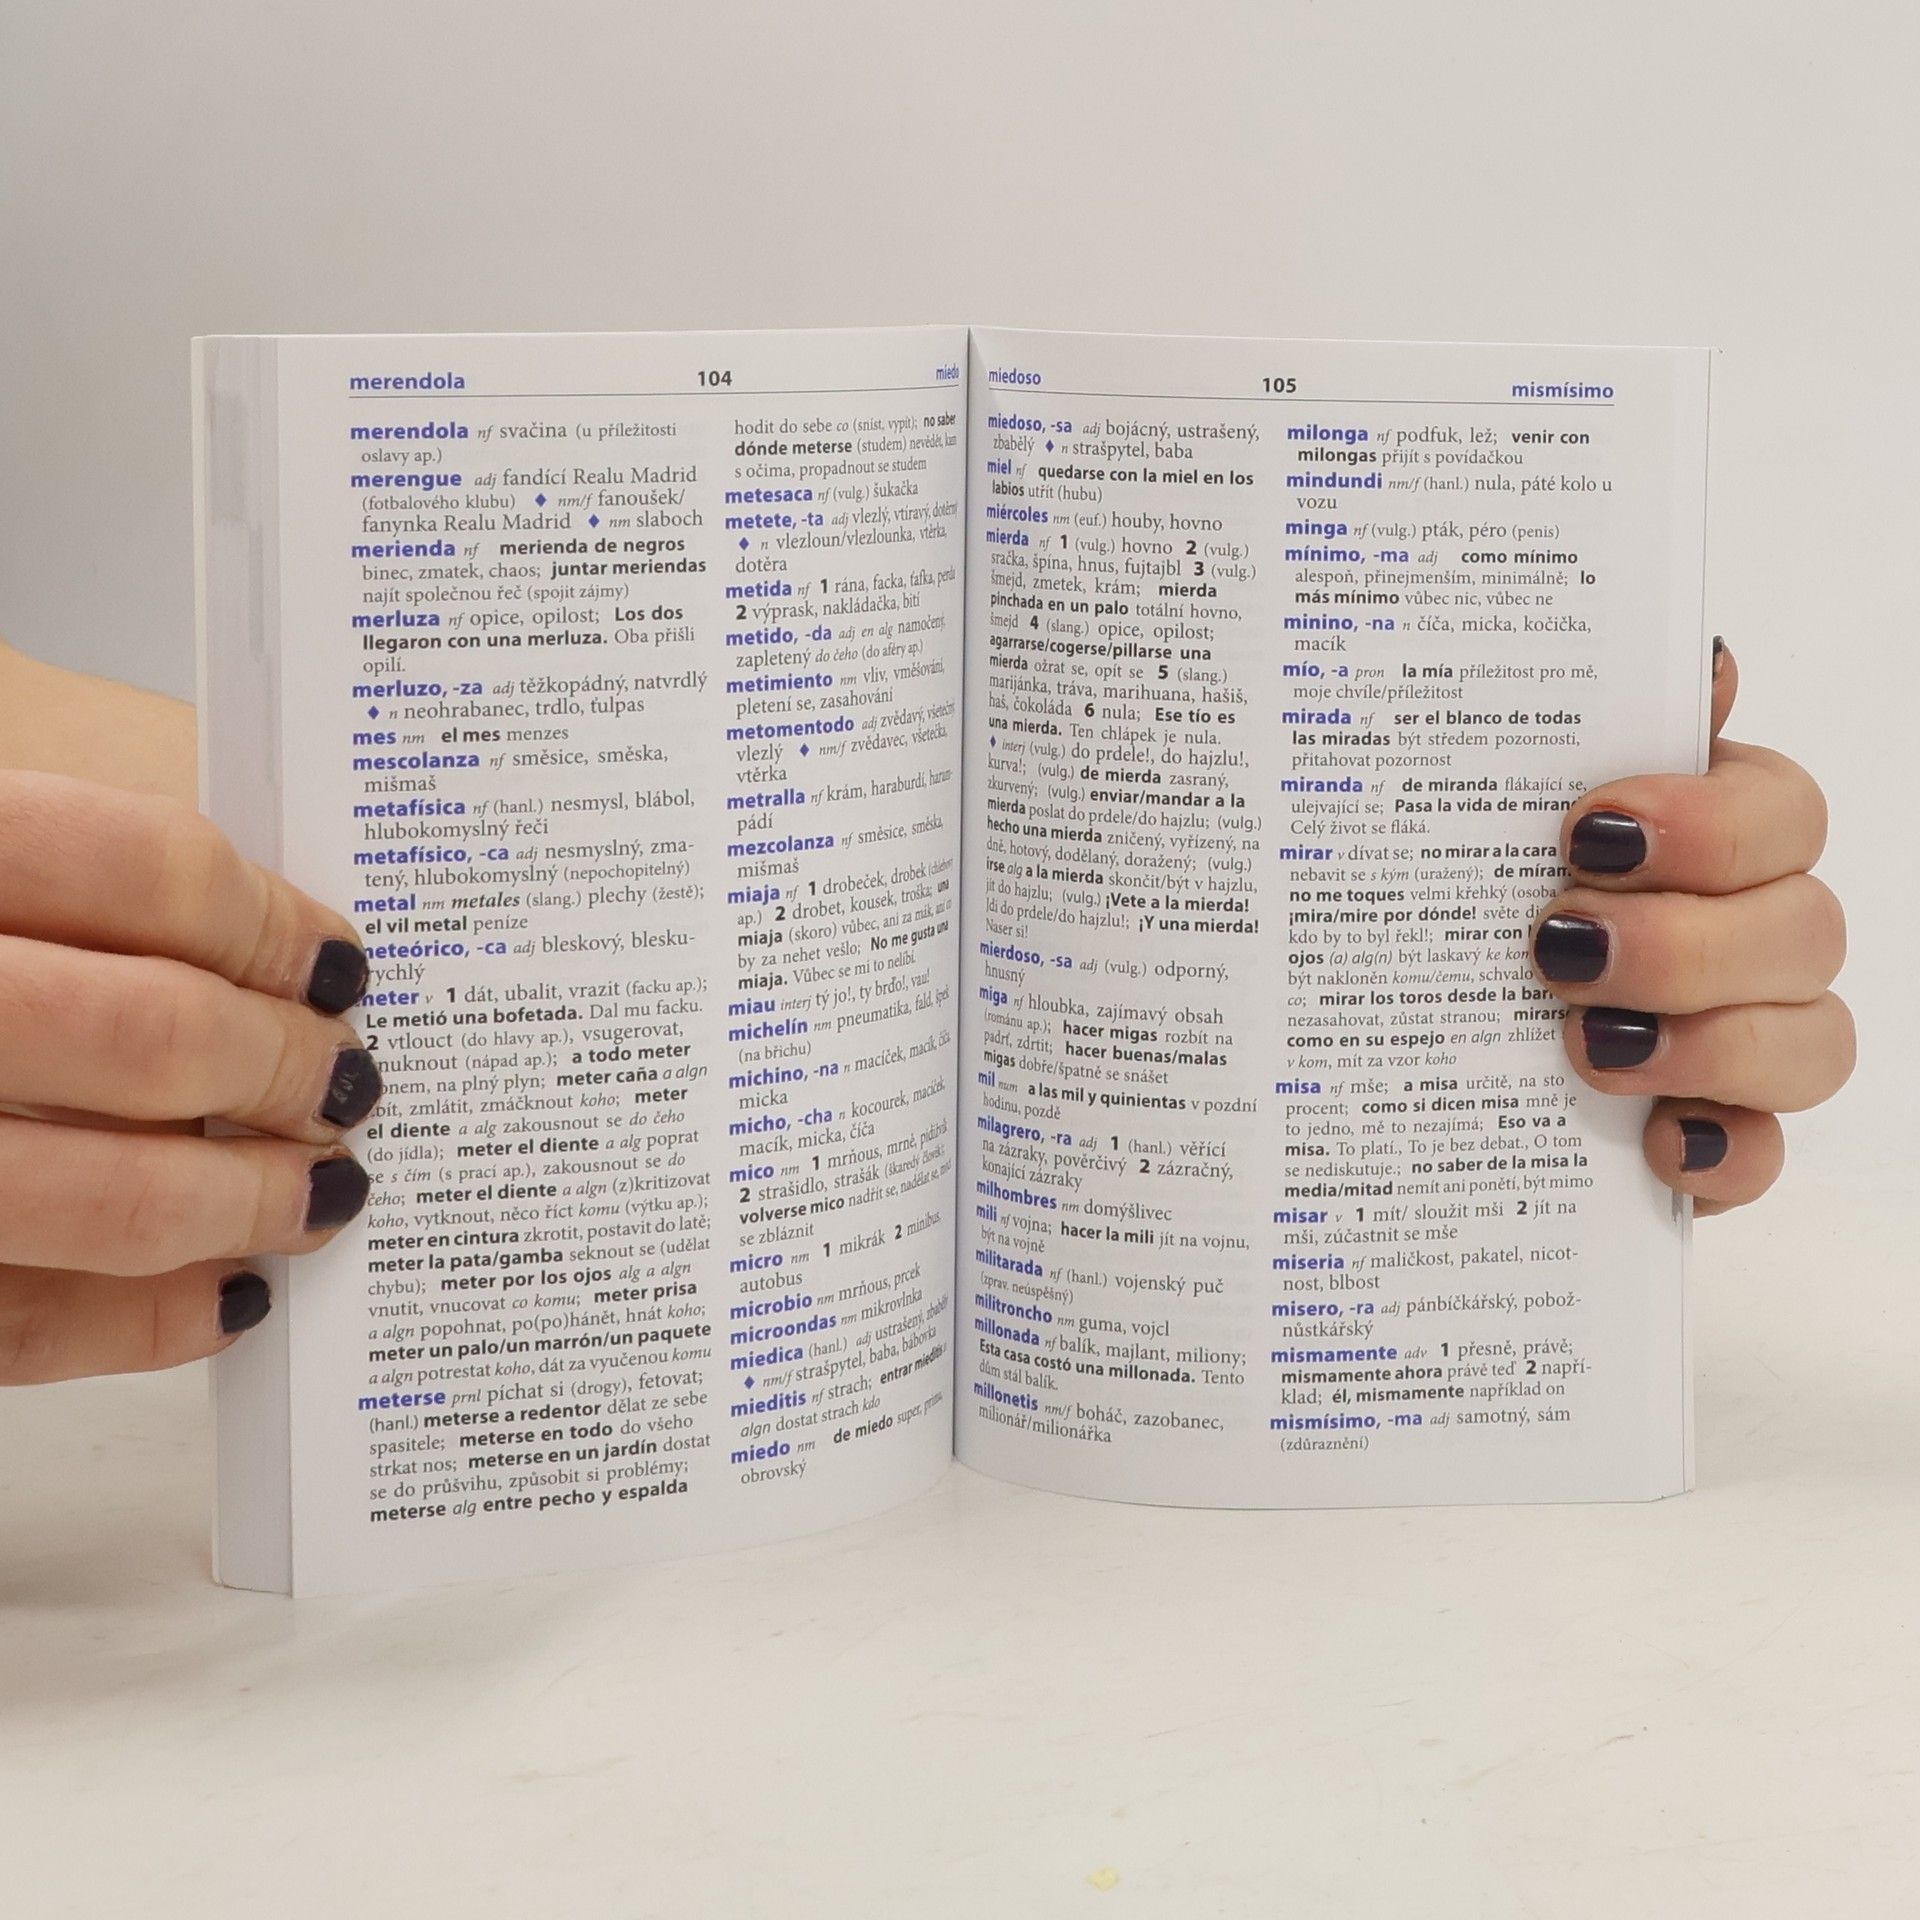 merendola 104 miedo
merendola nf svačina (u příležitosti
oslavy ap.)
merengue adj fandící Realu Madrid
(fotbalového klubu) ♦ nm/f fanoušek/
fanynka Realu Madrid ♦ nm slaboch
merienda nf merienda de negros
binec, zmatek, chaos; juntar meriendas
najít společnou řeč (spojit zájmy)
merluza nf opice, opilost; Los dos
llegaron con una merluza. Oba přišli
opilí.
merluzo, -za adj těžkopádný, natvrdlý
♦ n neohrabanec, trdlo, ťulpas
mes nm el mes menzes
mescolanza nf směsice, směska,
mišmaš
metafísica nf (hanl.) nesmysl, blábol,
hlubokomyslný řeči
metafísico, -ca adj nesmyslný, zma-
tený, hlubokomyslný (nepochopitelný)
metal nm metales (slang.) plechy (žestě);
el vil metal peníze
meteórico, -ca adj bleskový, blesku-
rychlý
meter v 1 dát, ubalit, vrazit (facku ap.);
Le metió una bofetada. Dal mu facku.
2 vtlouct (do hlavy ap.), vsugerovat,
nuknout (nápad ap.); a todo meter
onem, na plný plyn; meter caña a algn
bít, zmlátit, zmáčknout koho; meter
el diente a alg zakousnout se do čeho
(do jídla); meter el diente a alg poprat
se s čím (s prací ap.), zakousnout se do
čeho; meter el diente a algn (z)kritizovat
koho, vytknout, něco říct komu (výtku ap.);
meter en cintura zkrotit, postavit do latě;
meter la pata/gamba seknout se (udělat
chybu); meter por los ojos alg a algn
vnutit, vnucovat co komu; meter prisa
a algn popohnat, po(po)hánět, hnát koho;
meter un palo/un marrón/un paquete
a algn potrestat koho, dát za vyučenou komu
meterse prnl píchat si (drogy), fetovat;
(hanl.) meterse a redentor dělat ze sebe
spasitele; meterse en todo do všeho
strkat nos; meterse en un jardín dostat
se do průšvihu, způsobit si problémy;
meterse alg entre pecho y espalda
hodit do sebe co (sníst, vypít); no saber
dónde meterse (studem) nevědět, kam
s očima, propadnout se studem
metesaca nf (vulg.) šukačka
metete, -ta adj vlezlý, vtíravý, dotěrný
♦ n vlezloun/vlezlounka, vtěrka,
dotěra
metida nf 1 rána, facka, ťafka, perda
2 výprask, nakládačka, bití
metido, -da adj en alg namočený,
zapletený do čeho (do aféry ap.)
metimiento nm vliv, vměšování,
pletení se, zasahování
metomentodo adj zvědavý, všetečný,
vlezlý ♦ nm/f zvědavec, všetečka,
vtěrka
metralla nf krám, haraburdí, haram-
pádí
mezcolanza nf směsice, směska,
mišmaš
miaja nf 1 drobeček, drobek (chlebový
ap.) 2 drobet, kousek, troška; una
miaja (skoro) vůbec, ani za mák, ani co
by za nehet vešlo; No me gusta una
miaja. Vůbec se mi to nelíbí.
miau interj tý jo!, ty brďo!, vau!
michelín nm pneumatika, fald, špek
(na břichu)
michino, -na n macíček, macík, číča,
micka
micho, -cha n kocourek, macíček,
macík, micka, číča
mico nm 1 mrňous, mrně, pidižvík
2 strašidlo, strašák (škaredý člověk);
volverse mico nadřít se, nadělat se, moct
se zbláznit
micro nm 1 mikrák 2 minibus,
autobus
microbio nm mrňous, prcek
microondas nm mikrovlnka
miedica (hanl.) adj ustrašený, zbabělý
♦ nm/f strašpytel, baba, bábovka
mieditis nf strach; entrar mieditis a
algn dostat strach kdo
miedo nm de miedo super, prima,
obrovský
miedoso 105 mismísimo
miedoso, -sa adj bojácný, ustrašený,
zbabělý ♦ n strašpytel, baba
miel nf quedarse con la miel en los
labios utřít (hubu)
miércoles nm (euf.) houby, hovno
mierda nf 1 (vulg.) hovno 2 (vulg.)
sračka, špína, hnus, fujtajbl 3 (vulg.)
šmejd, zmetek, krám; mierda
pinchada en un palo totální hovno,
šmejd 4 (slang.) opice, opilost;
agarrarse/cogerse/pillarse una
mierda ožrat se, opít se 5 (slang.)
marijánka, tráva, marihuana, hašiš,
haš, čokoláda 6 nula; Ese tío es
una mierda. Ten chlápek je nula.
♦ interj (vulg.) do prdele!, do hajzlu!,
kurva!; (vulg.) de mierda zasraný,
zkurvený; (vulg.) enviar/mandar a la
mierda poslat do prdele/do hajzlu; (vulg.)
hecho una mierda zničený, vyřízený, na
dně, hotový, dodělaný, doražený; (vulg.)
irse alg a la mierda skončit/být v hajzlu,
jít do hajzlu; (vulg.) ¡Vete a la mierda!
Jdi do prdele/do hajzlu!; ¡Y una mierda!
Naser si!
mierdoso, -sa adj (vulg.) odporný,
hnusný
miga nf hloubka, zajímavý obsah
(románu ap.); hacer migas rozbít na
padrť, zdrtit; hacer buenas/malas
migas dobře/špatně se snášet
mil num a las mil y quinientas v pozdní
hodinu, pozdě
milagrero, -ra adj 1 (hanl.) věřící
na zázraky, pověrčivý 2 zázračný,
konající zázraky
milhombres nm domýšlivec
mili nf vojna; hacer la mili jít na vojnu,
být na vojně
militarada nf (hanl.) vojenský puč
(zprav. neúspěšný)
militroncho nm guma, vojcl
millonada nf balík, majlant, miliony;
Esta casa costó una millonada. Tento
dům stál balík.
millonetis nm/f boháč, zazobanec,
milionář/milionářka
milonga nf podfuk, lež; venir con
milongas přijít s povídačkou
mindundi nm/f (hanl.) nula, páté kolo u
vozu
minga nf (vulg.) pták, péro (penis)
mínimo, -ma adj como mínimo
alespoň, přinejmenším, minimálně; lo
más mínimo vůbec nic, vůbec ne
minino, -na n číča, micka, kočička,
macík
mío, -a pron la mía příležitost pro mě,
moje chvíle/příležitost
mirada nf ser el blanco de todas
las miradas být středem pozornosti,
přitahovat pozornost
miranda nf de miranda flákající se,
ulejvající se; Pasa la vida de miran
Celý život se fláká.
mirar v dívat se; no mirar a la cara
nebavit se s kým (uražený); de míram
no me toques velmi křehký (osoba
¡mira/mire por dónde! světe di
kdo by to byl řekl!; mirar con
ojos (a) alg(n) být laskavý ke kom
být nakloněn komu/čemu, schvalo
co; mirar los toros desde la barr
nezasahovat, zůstat stranou; mirars
como en su espejo en algn zhlížet
v kom, mít za vzor koho
misa nf mše; a misa určitě, na sto
procent; como si dicen misa mně je
to jedno, mě to nezajímá; Eso va a
misa. To platí., To je bez debat., O tom
se nediskutuje.; no saber de la misa la
media/mitad nemít ani ponětí, být mimo
misar v 1 mít/ sloužit mši 2 jít na
mši, zúčastnit se mše
miseria nf maličkost, pakatel, nicot-
nost, blbost
misero, -ra adj pánbíčkářský, pobož-
nůstkářský
mismamente adv 1 přesně, právě;
mismamente ahora právě teď 2 napří-
klad; él, mismamente například on
mismísimo, -ma adj samotný, sám
(zdůraznění)